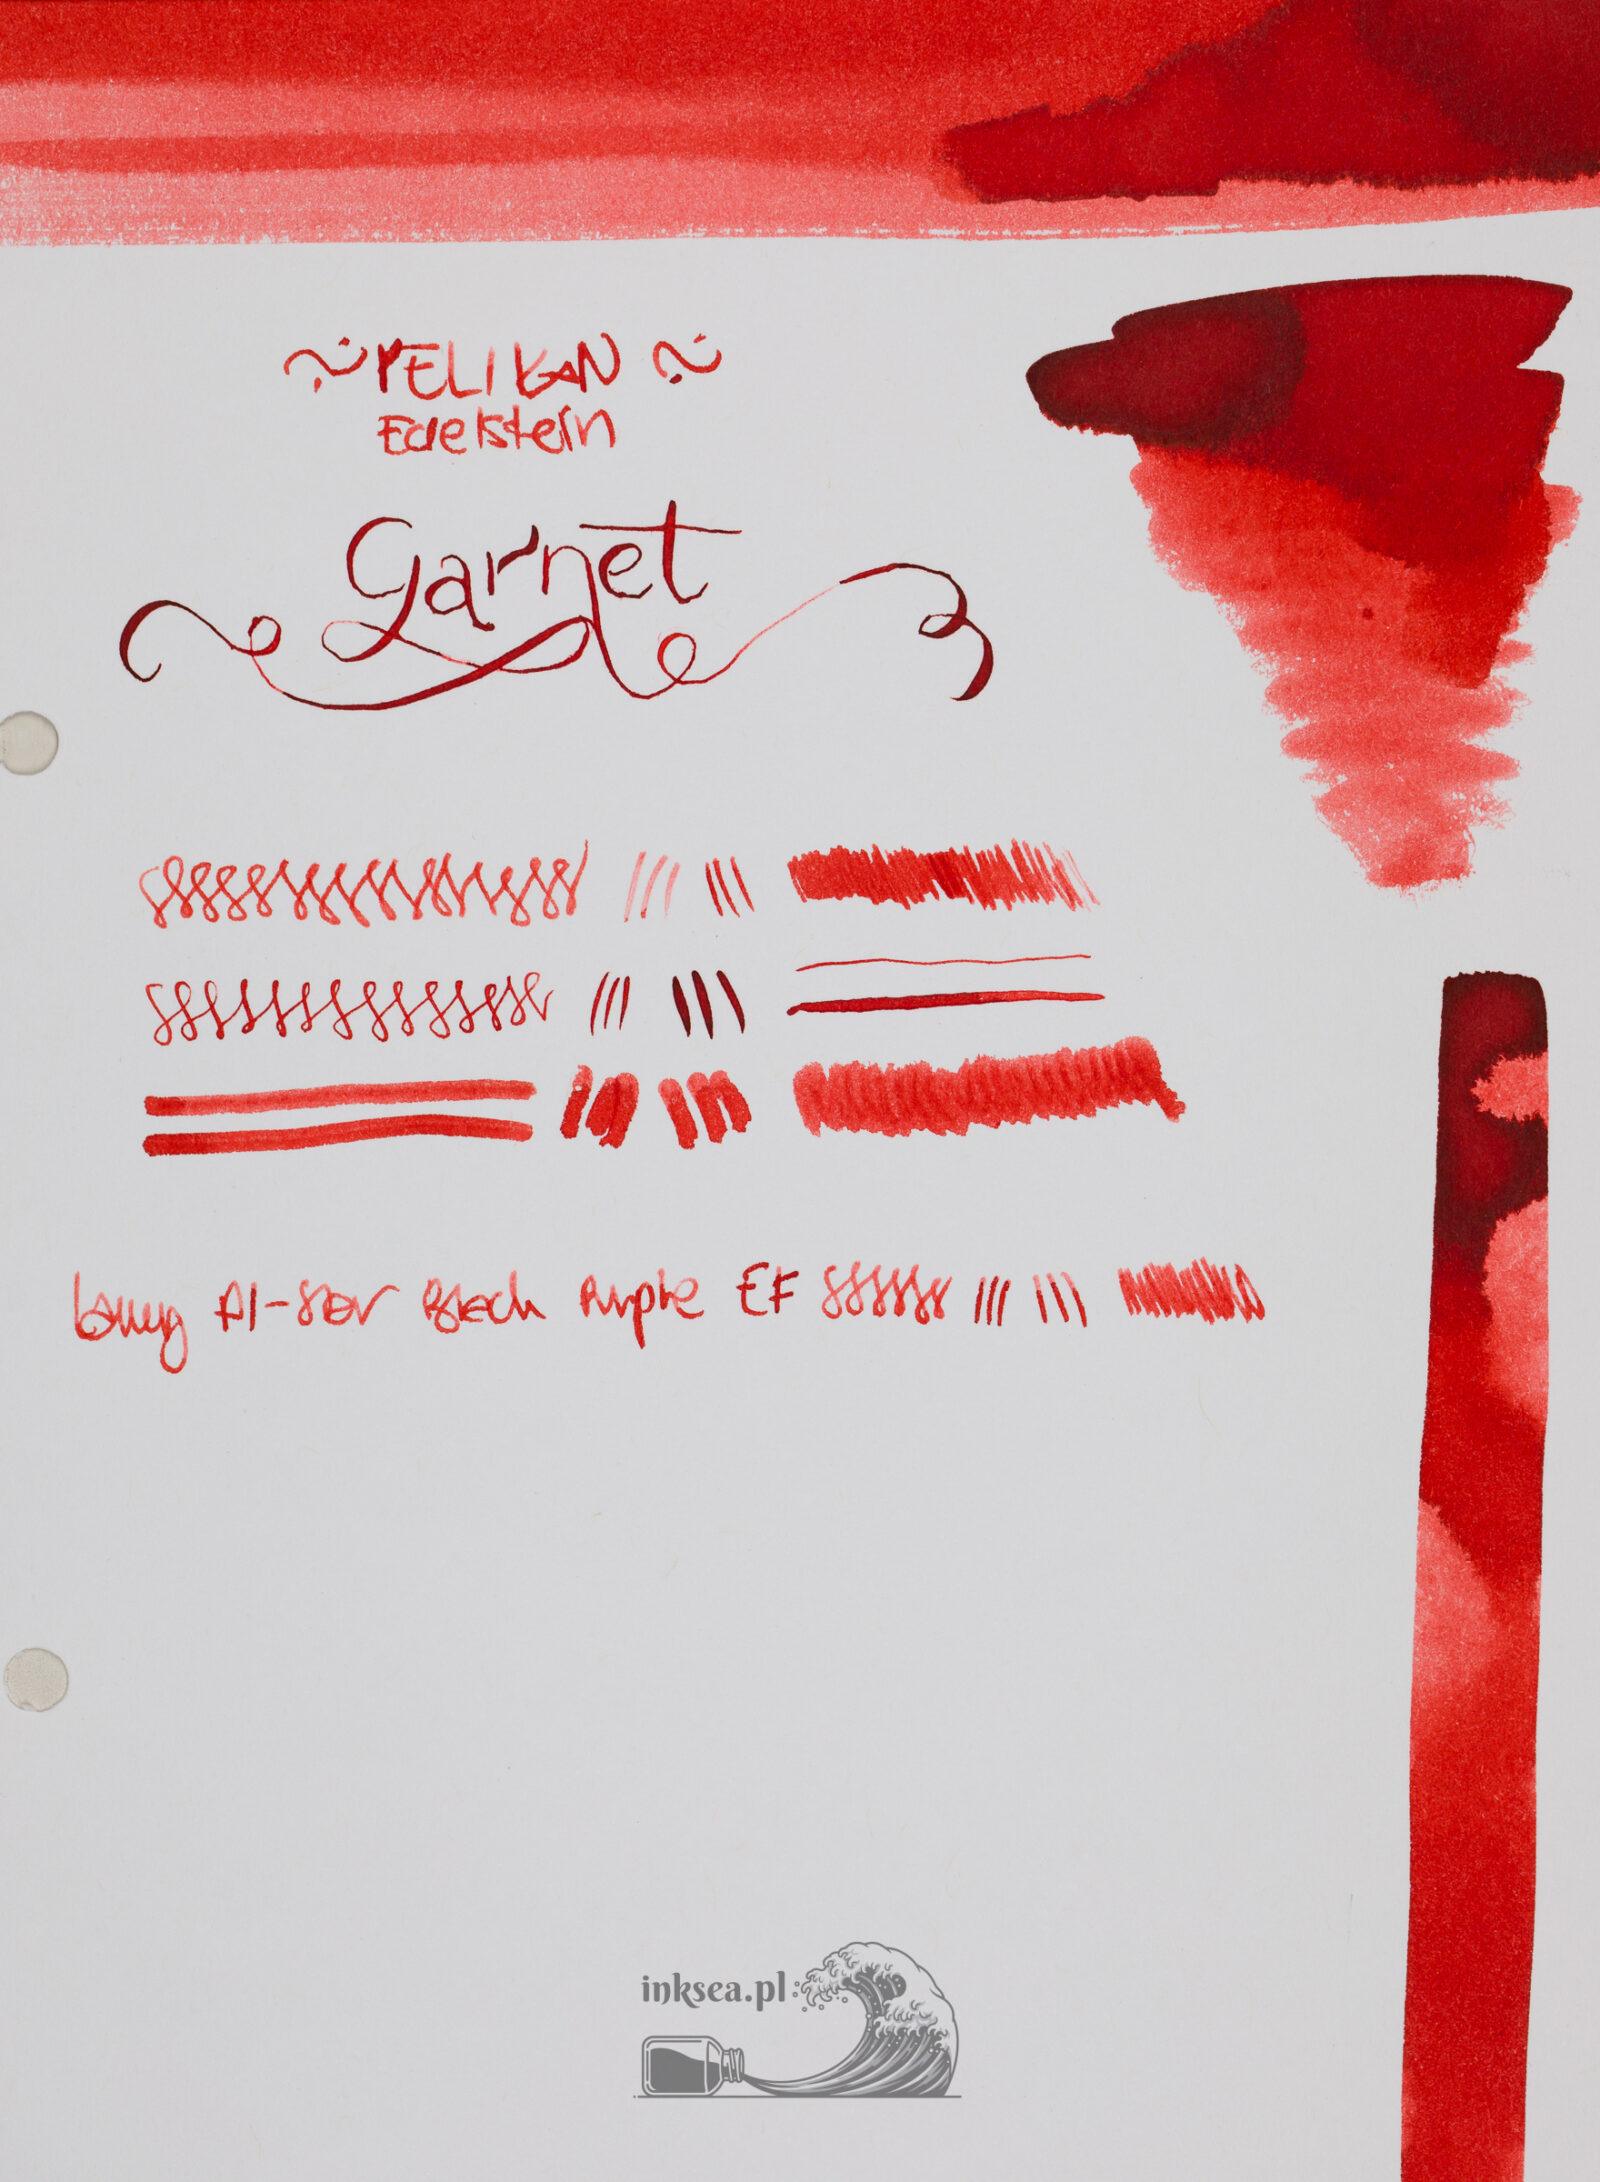 PELIKAN
Edelstein
Garnet
Lamy Al-Star Black Purple EF
inksea.pl